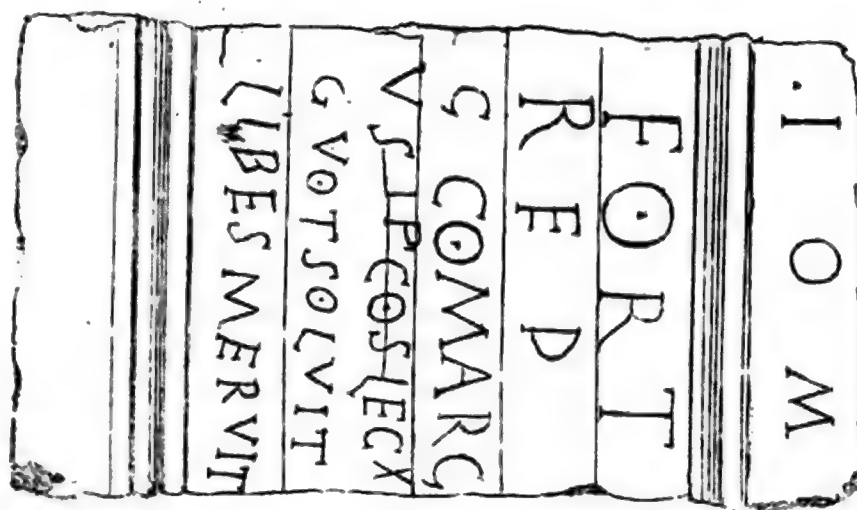 · I O M
FORT
R E D
G COMARG
V S IP COS LEG X
G VOT SOLVIT
LUBES MERVIT